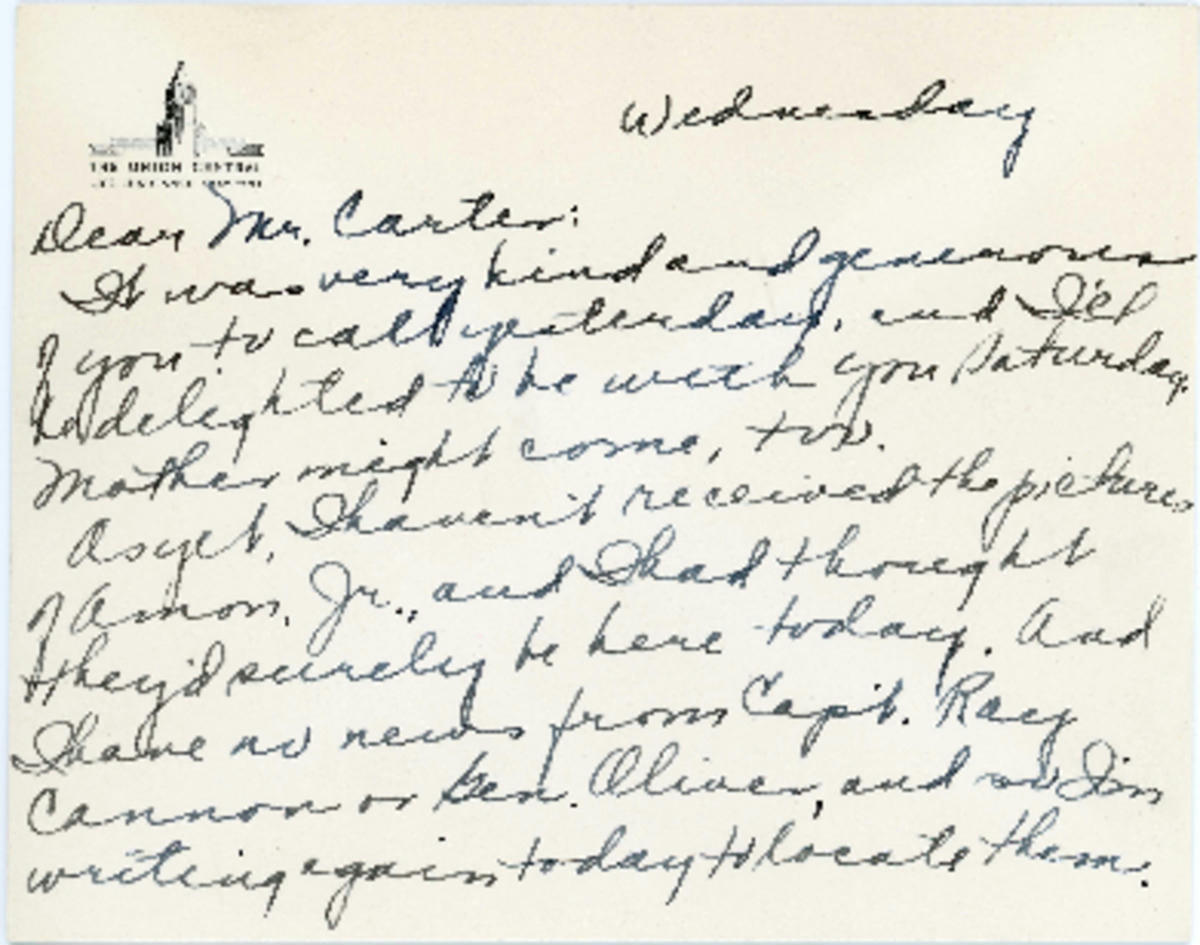 Wednesday
THE UNION CENTRAL
Dear Mr. Carter:
It was very kind and generous
of you to call yesterday, and I'll
be delighted to be with you Saturday.
Mother might come, too.
As yet, I haven't received the pictures
of Amon, Jr., and I had thought
they'd surely be here today. And
I have no news from Capt. Ray
Cannon or Gen. Oliver, and so I'm
writing again today to locate them.